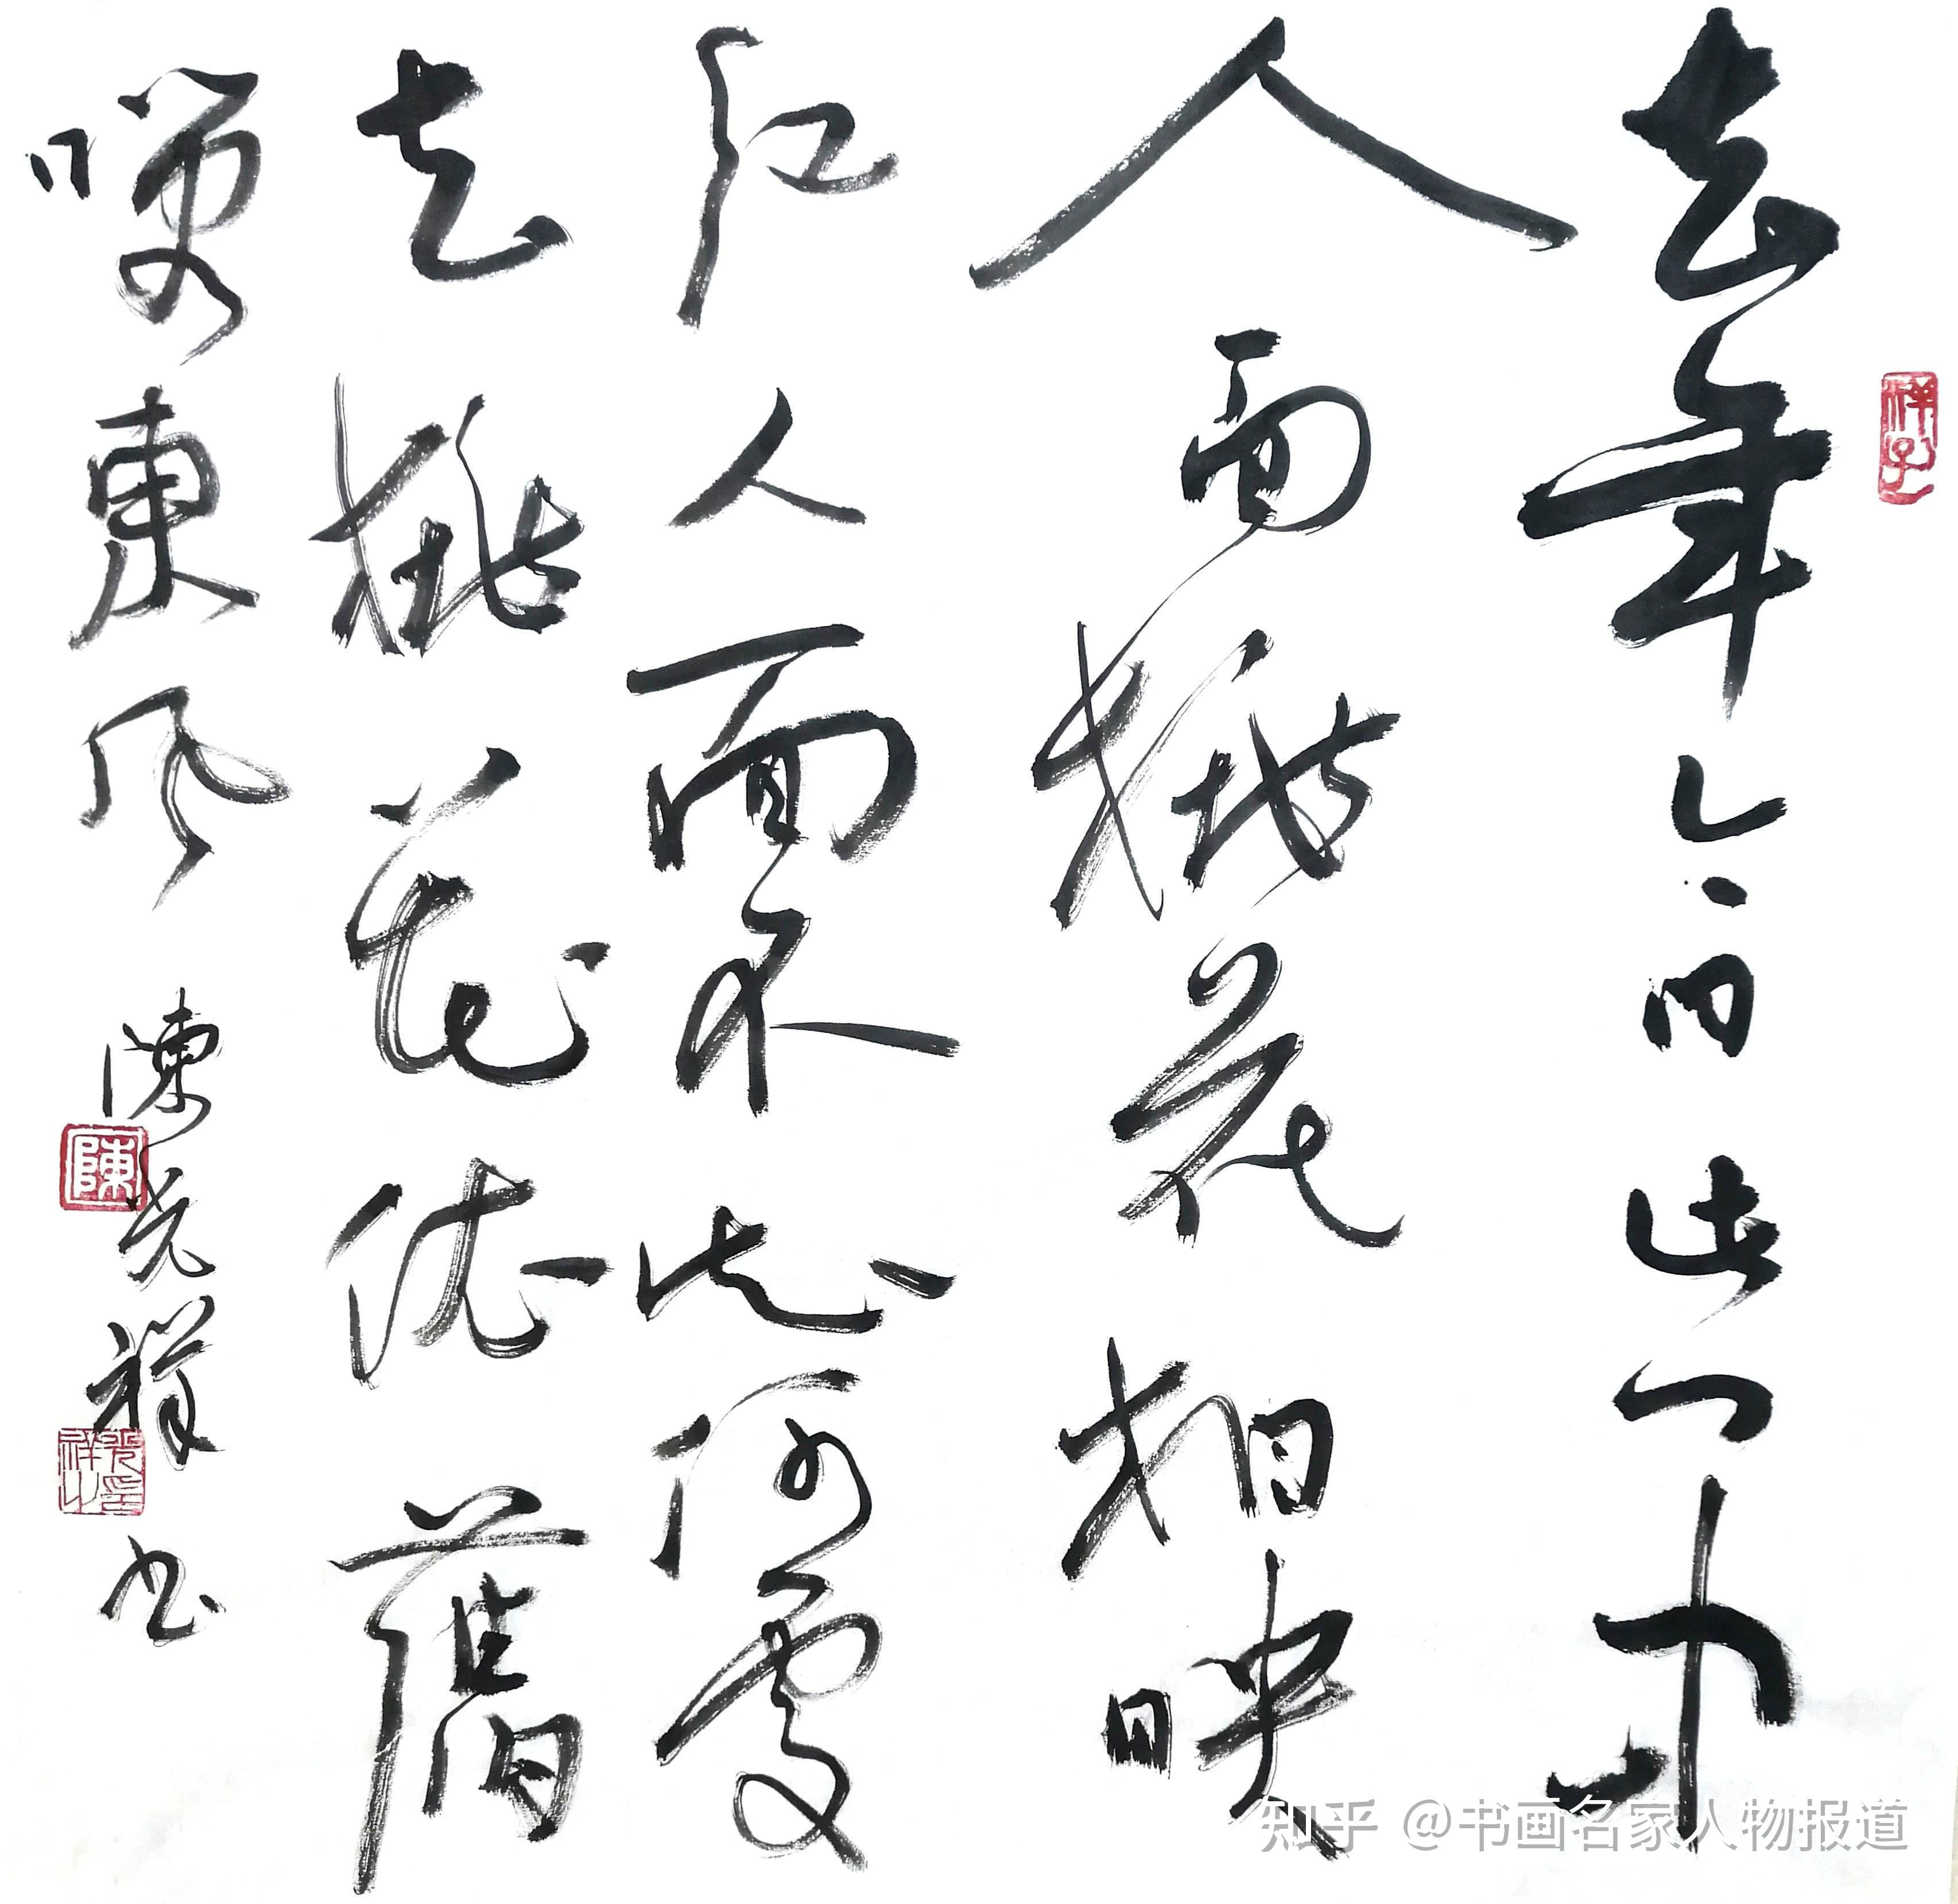 去年今日此门中
人面桃花相映
红人面不知何處
去桃花依舊
笑東風
陳光祥书
祥子
陳
光祥之印
知乎 @书画名家人物报道